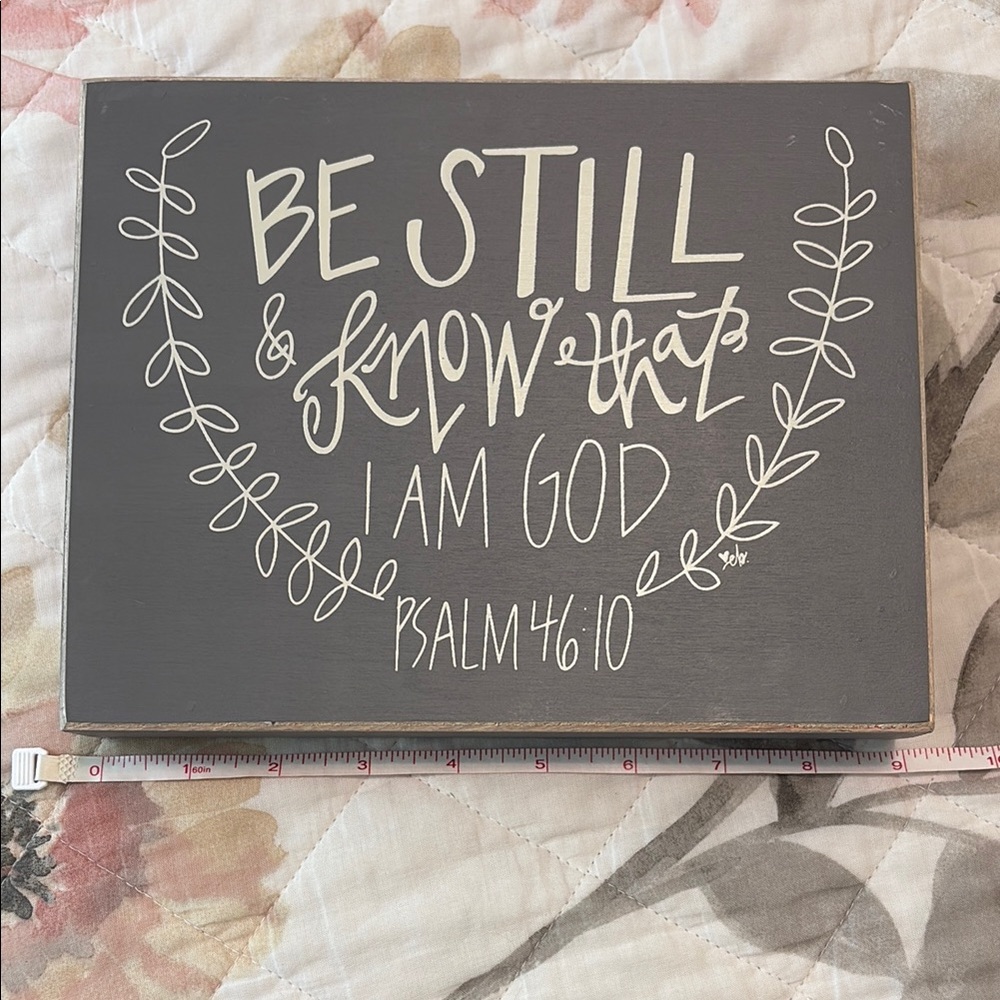 BE STILL
& know that
I AM GOD
PSALM 46:10
0 1 60in 2 3 4 5 6 7 8 9